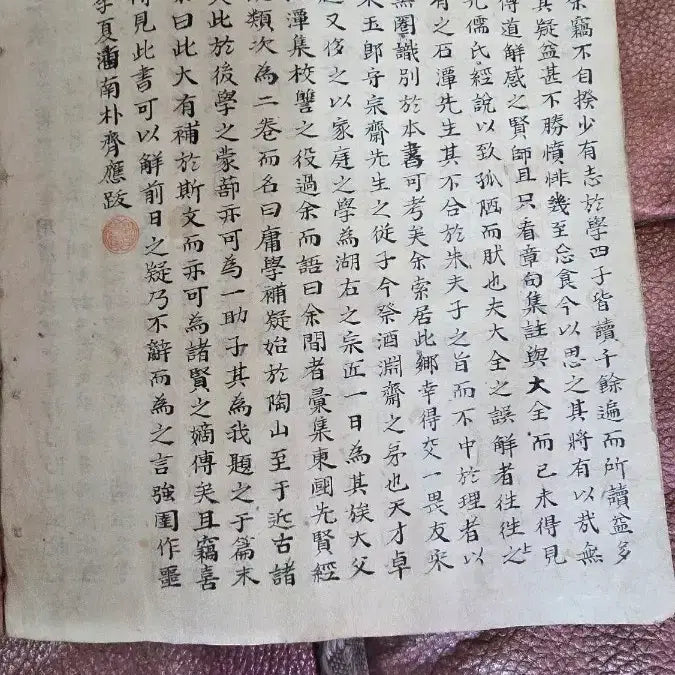 余竊不自揆少有志於學四子皆讀千餘遍而所讀益多
其疑益甚不勝憤悱幾至忘食今以思之其將有以哉無
傳道解惑之賢師且只看章句集註與大全而已未得見
先儒氏經說以致孤陋而肰也夫大全之誤解者往往之
有之石潭先生其不合於朱夫子之旨而不中於理者以
黑圈識別於本書可考矣余索居此鄉幸得交一畏友宋
玉郎守宗齋先生之從子今祭酒淵齋之弟也天才卓
又侈之以家庭之學為湖右之宗匠一日為其族大父
潭集校讐之役過余而語曰余間者彙集東國先賢經
類次為二卷而名曰庸學補疑始於陶山至于近古諸
此於後學之蒙蔀亦可為一助子其為我題之于篇末
曰此大有補於斯文而亦可為諸賢之嫡傳矣且竊喜
得見此書可以解前日之疑乃不辭而為之言強圉作噩
季夏潘南朴齊應跋